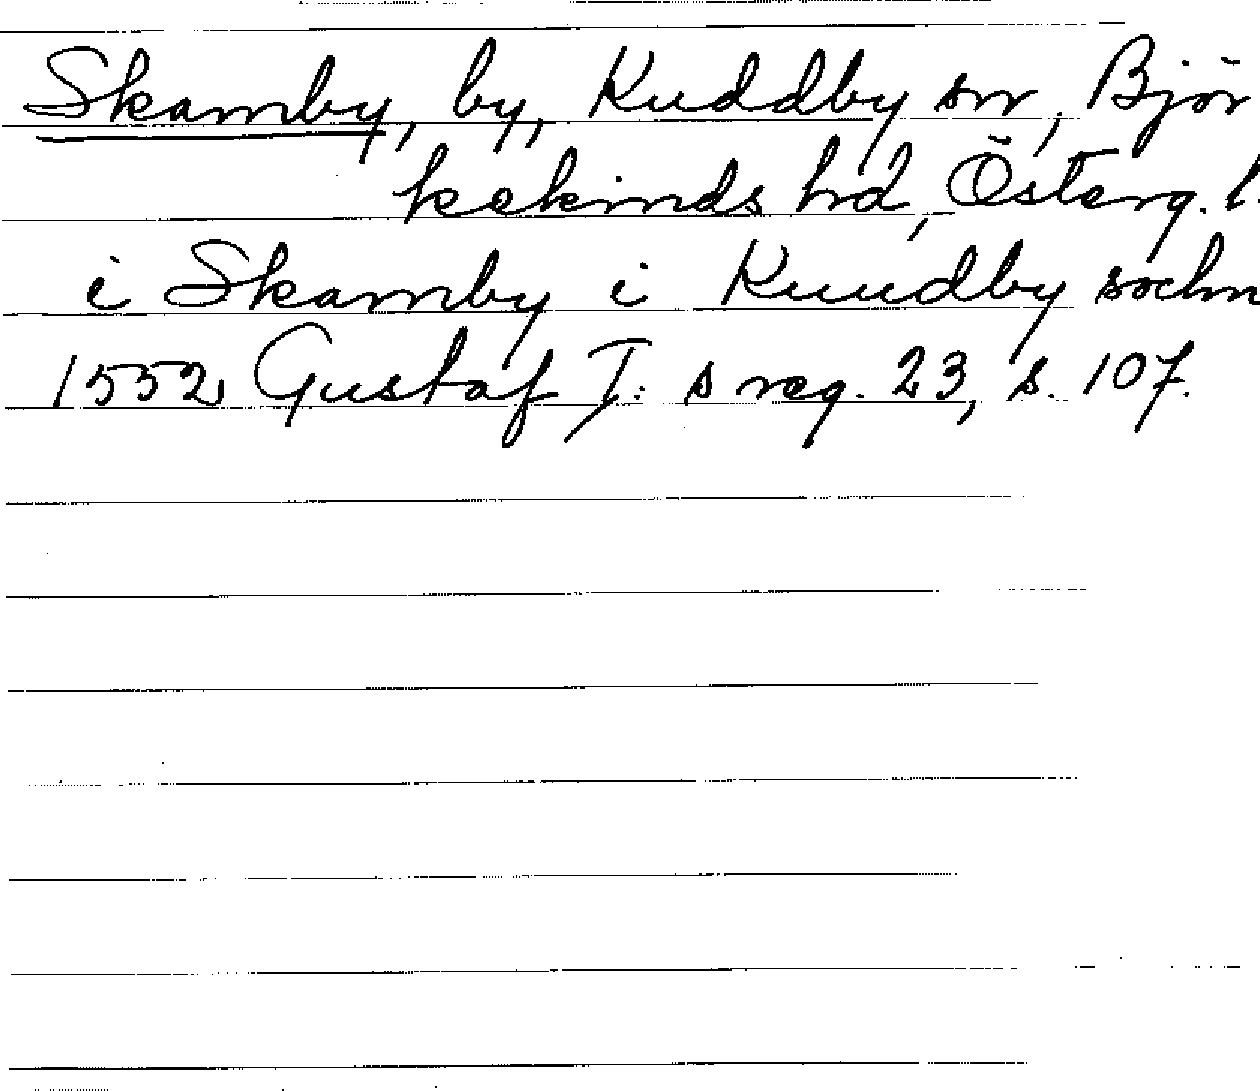 Skamby, by, Kuddby sn, Björ
kekinds hd, Österg. l.
i Skamby i Kuudby sochn
1552 Gustaf I: s reg. 23, s. 107.